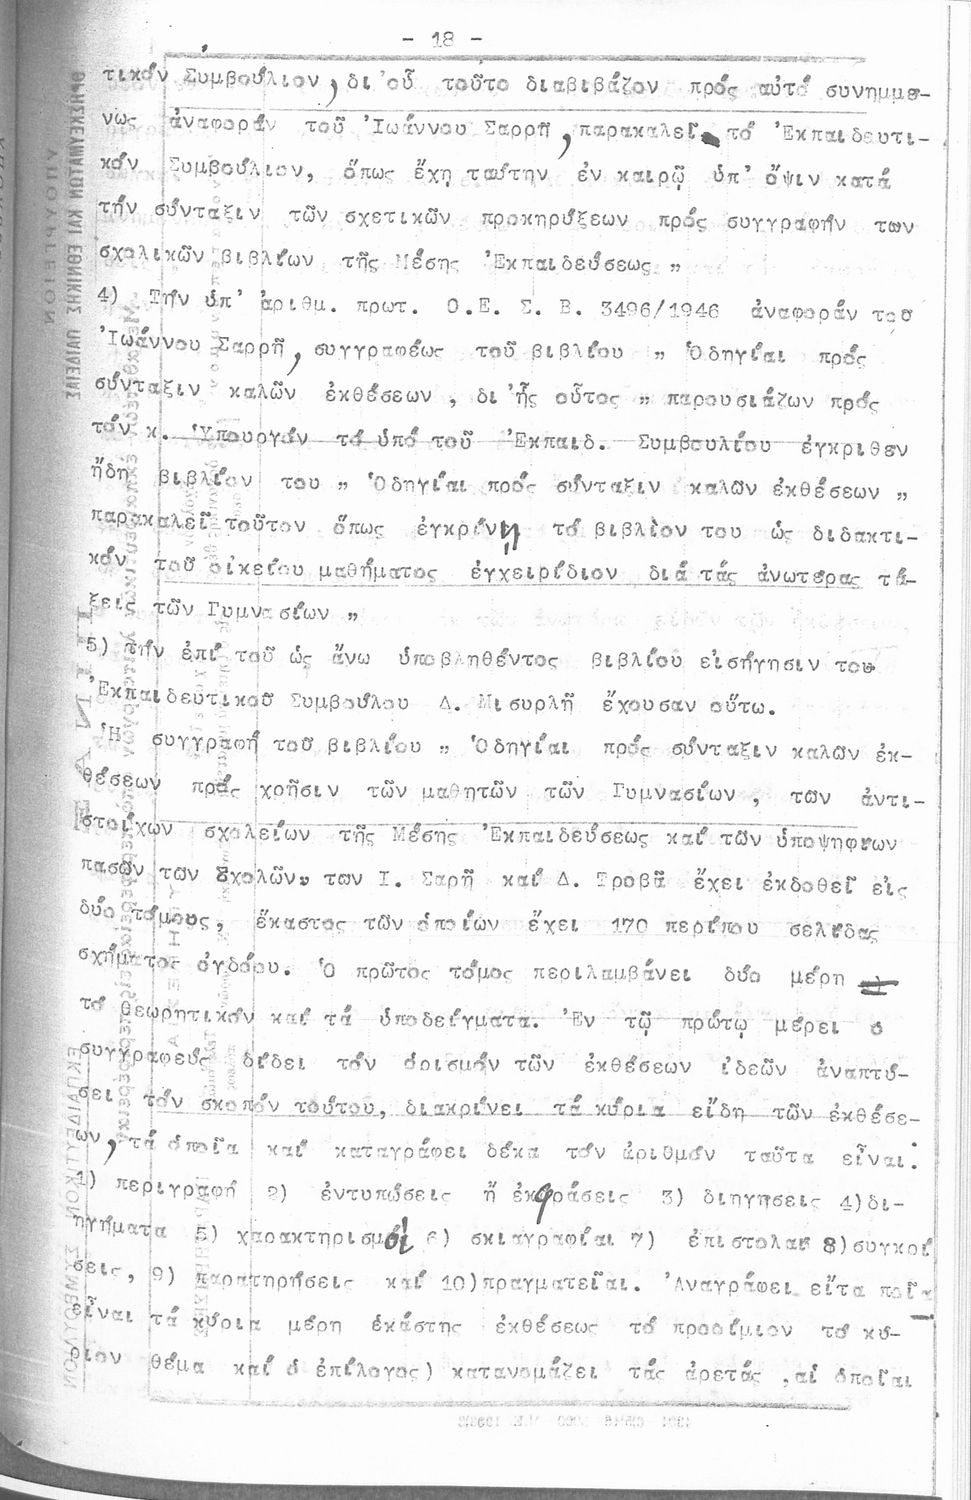 - 18 -
τικόν Συμβούλιον, δι'οὗ τοῦτο διαβιβάζον πρός αὐτό συνημμέ-
νως ἀναφοράν τοῦ Ἰωάννου Σαρρῆ, παρακαλεῖ τό Ἐκπαιδευτι-
κόν Συμβούλιον, ὅπως ἔχῃ ταύτην ἐν καιρῷ ὑπ' ὄψιν κατά
τήν σύνταξιν τῶν σχετικῶν προκηρύξεων πρός συγγραφήν των
σχολικῶν βιβλίων τῆς Μέσης Ἐκπαιδεύσεως "
4) Τήν ὑπ' ἀριθμ. πρωτ. Ο.Ε. Σ. Β. 3496/1946 ἀναφοράν τοῦ
Ἰωάννου Σαρρῆ, συγγραφέως τοῦ βιβλίου " Ὁδηγίαι πρός
σύνταξιν καλῶν ἐκθέσεων , δι'ἧς οὗτος " παρουσιάζων πρός
τόν κ. Ὑπουργόν τό ὑπό τοῦ Ἐκπαιδ. Συμβουλίου ἐγκριθεν
ἤδη βιβλίον του " Ὁδηγίαι πρός σύνταξιν καλῶν ἐκθέσεων "
παρακαλεῖ τοῦτον ὅπως ἐγκρίνῃ τό βιβλίον του ὡς διδακτι-
κόν τοῦ οἰκείου μαθήματος ἐγχειρίδιον διά τάς ἀνωτέρας τά-
ξεις τῶν Γυμνασίων "
5) τήν ἐπί τοῦ ὡς ἄνω ὑποβληθέντος βιβλίου εἰσήγησιν του
Ἐκπαιδευτικοῦ Συμβούλου Δ. Μισυρλῆ ἔχουσαν οὕτω.
Ἡ συγγραφή τοῦ βιβλίου " Ὁδηγίαι πρός σύνταξιν καλῶν ἐκ-
θέσεων πρός χρῆσιν τῶν μαθητῶν τῶν Γυμνασίων , τῶν ἀντι-
στοίχων σχολείων τῆς Μέσης Ἐκπαιδεύσεως καί τῶν ὑποψηφίων
πασῶν των Σχολῶν, των Ι. Σαρῆ καί Δ. Τροβᾶ ἔχει ἐκδοθεῖ εἰς
δύο τόμους, ἕκαστος τῶν ὁποίων ἔχει 170 περίπου σελίδας
σχήματος ὀγδόου. Ὁ πρῶτος τόμος περιλαμβάνει δύο μέρη
τό θεωρητικόν καί τά ὑποδείγματα. Ἐν τῷ πρώτῳ μέρει ο
συγγραφεύς δίδει τόν ὁρισμόν τῶν ἐκθέσεων ἰδεῶν ἀναπτύ-
σει τόν σκοπόν τούτου, διακρίνει τά κύρια εἴδη τῶν ἐκθέσε-
ων, τά ὁποῖα καί καταγράφει δέκα τόν ἀριθμόν ταῦτα εἶναι:
1) περιγραφή 2) ἐντυπώσεις ἤ ἐκφράσεις 3) διηγησεις 4)δι-
ηγήματα 5) χαρακτηρισμοί 6) σκιαγραφίαι 7) ἐπιστολαί 8)συγκρί
σεις, 9) παρατηρήσεις καί 10)πραγματεῖαι. Ἀναγράφει εἴτα ποῖα
εἶναι τά κύρια μέρη ἑκάστης ἐκθέσεως τό προοίμιον τό κύ-
ριον θέμα καί ὁ ἐπίλογος) κατανομάζει τάς ἀρετάς ,αἱ ὁποῖαι